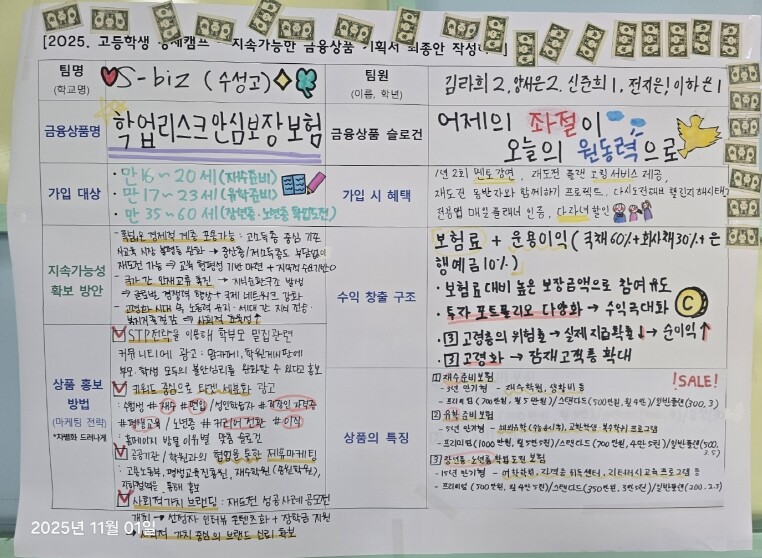 [2025. 고등학생 경제캠프 - 지속가능한 금융상품 기획서 최종안 작성
팀명
(학교명)
S-biz (수성고)
팀원
(이름, 학년)
금융상품명
학업리스크안심보장보험
금융상품 슬로건
어제의 좌절이
오늘의 원동력으로
가입 대상
· 만 16~20세 (재수준비)
· 만 17~23세 (유학준비)
· 만 35~60세 (장년층·노년층 학업도전)
가입 시 혜택
1년 2회 멘토강연, 재도전 플랜 코칭 서비스 제공,
재도전 동반자와 함께하기 프로젝트, 다시도전대보 챌린지해시태그
전공법 매일플래너 인증, 다자녀할인
지속가능성
확보 방안
- 폭넓은 경제적 계층 포용가능 : 고소득층 중심 기존
사교육 시장 불평등 완화 → 중산층/저소득층도 부담없이
재도전 가능 → 교육 형평성 기반 마련 + 지속적 수요기반
- 국가 간 인재교류 촉진 → 지식순환구조 형성
→ 글로벌 경쟁력 향상 + 국제 네트워크 강화
- 고령화 시대 속 노동력 유지·세대 간 지식 전승·
복지지출절감 → 사회적 효율성↑
수익 창출 구조
보험료 + 운용이익 (국채 60% + 회사채 30% + 은
행예금 10%)
· 보험료 대비 높은 보장금액으로 참여 유도
· 투자 포트폴리오 다양화 → 수익극대화
· 3 고령층의 위험률 → 실제 지급확률↓ → 순이익↑
· 3 고령화 → 잠재고객층 확대
상품 홍보
방법
(마케팅 전략)
*차별화 드러나게
STP전략을 이용해 학부모 밀집관련
커뮤니티에 광고 : 맘카페, 학원게시판에
부모·학생 모두의 불안심리를 완화할 수 있다고 홍보
키워드 중심으로 타겟 세분화 광고
: 수험생 #재수 #편입 / 성인학습자 #직장인 자격증
#평생교육 / 노년층 #커리어전환 #이직
: 홈페이지 방문 이유별 맞춤 슬로건
공공기관 / 학원과의 협업을 통한 제휴마케팅
: 고용노동부, 평생교육진흥원, 재수학원(종원학원),
통해 홍보
사회적가치 브랜딩 : 재도전 성공사례공모전
개최 → 선정자 인터뷰 콘텐츠화 + 장학금 지원
→ 사회적 가치 중심의 브랜드 신뢰 확보
상품의 특징
!SALE!
1 재수준비보험
- 3년 만기형 - 재수학원, 상담비 등
- 프리미엄 (700만원, 월 5만원) / 스탠다드 (500만원, 월 4만) / 일반플랜 (300, 3)
2 유학 준비보험
- 프리미엄 (1000만원, 월 5만5천) / 스탠다드 (700만원, 4만5천) / 일반플랜 (500,
3.5)
3 장년층·노년층 학업도전 보험
- 15년 만기형 - 어학학원, 자격증 취득센터, 리터러시교육프로그램 등
- 프리미엄 (500만원, 월 4만5천) / 스탠다드 (350만원, 3만5천) / 일반플랜 (200, 2.5)
2025년 11월 01일